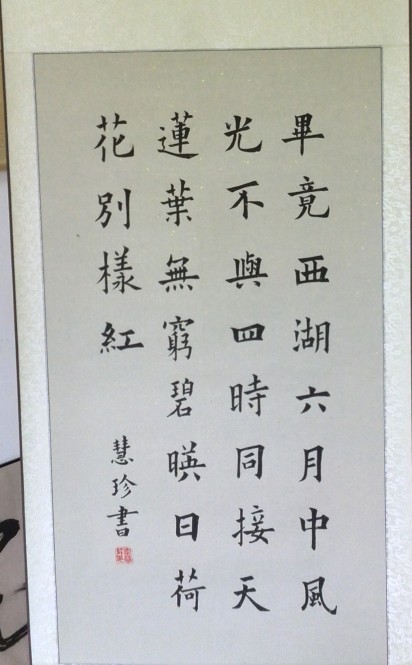 畢竟西湖六月中風
光不與四時同接天
蓮葉無窮碧暎日荷
花別樣紅
慧珍書